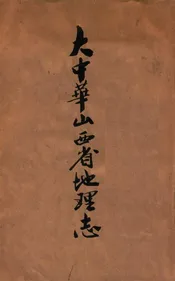 大中華山西省地理志